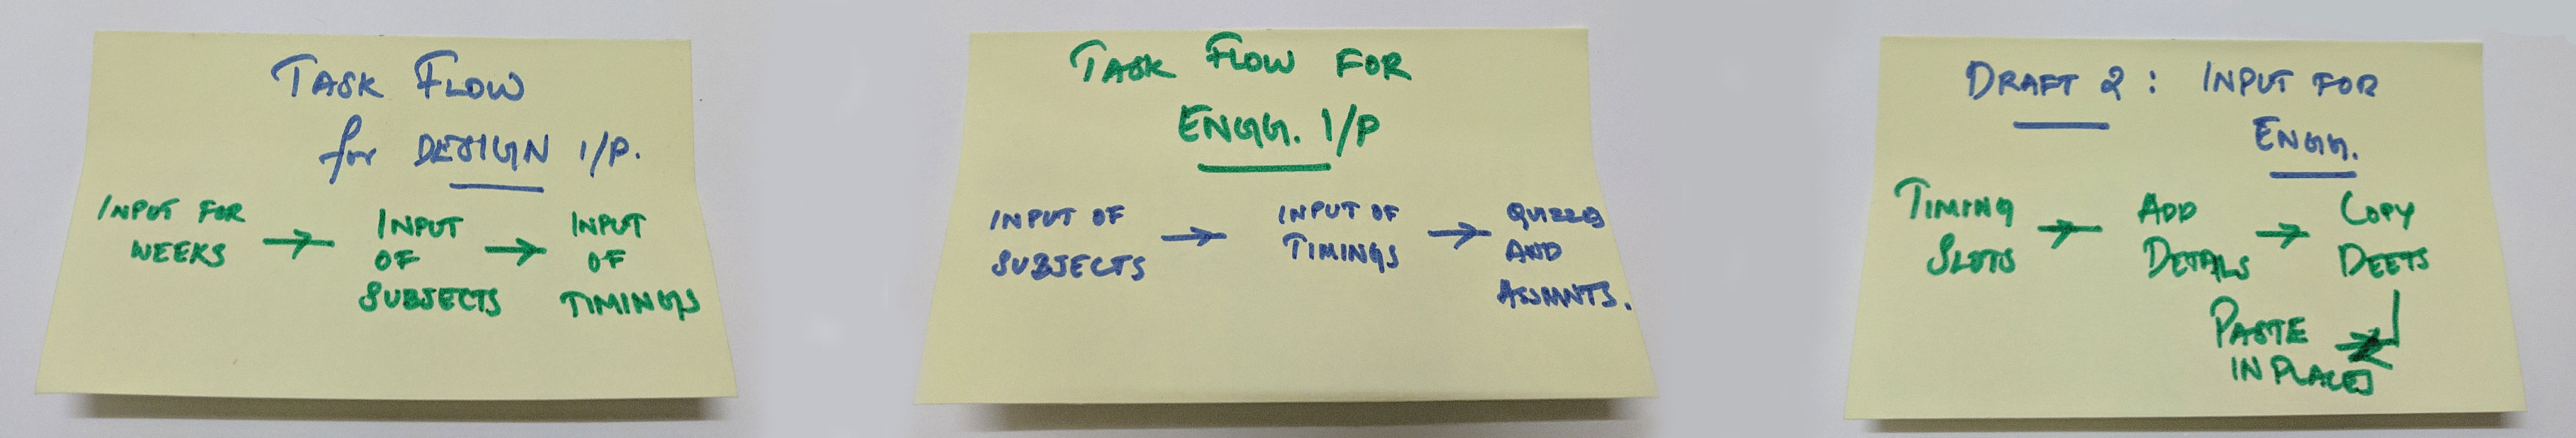 TASK FLOW
for DESIGN I/P.
INPUT FOR
WEEKS
→
INPUT
OF
SUBJECTS
→
INPUT
OF
TIMINGS
TASK FLOW FOR
ENGG. I/P
INPUT OF
SUBJECTS
→
INPUT OF
TIMINGS
→
QUIZES
AND
ASSMNTS.
DRAFT 2: INPUT FOR
ENGG.
TIMING
SLOTS
→
ADD
DETAILS
→
COPY
DEETS
PASTE
IN PLACES